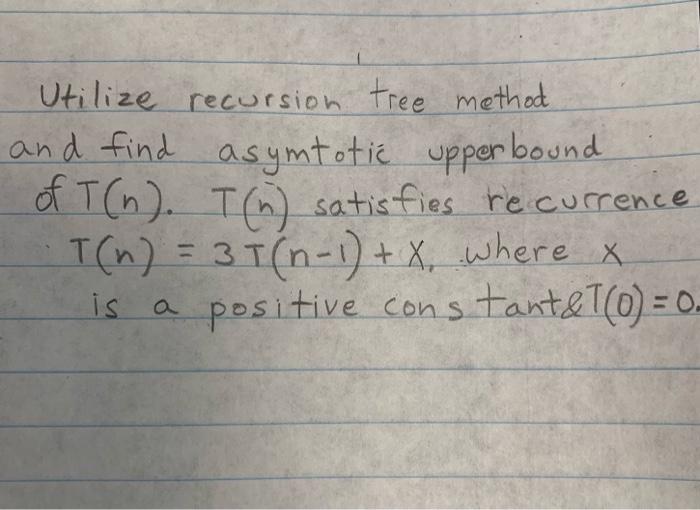 Utilize recursion tree method
and find asymtotic upperbound
of T(n). T(n) satisfies recurrence
T(n) = 3T(n-1) + X, where x
is a positive constant & T(0) = 0.